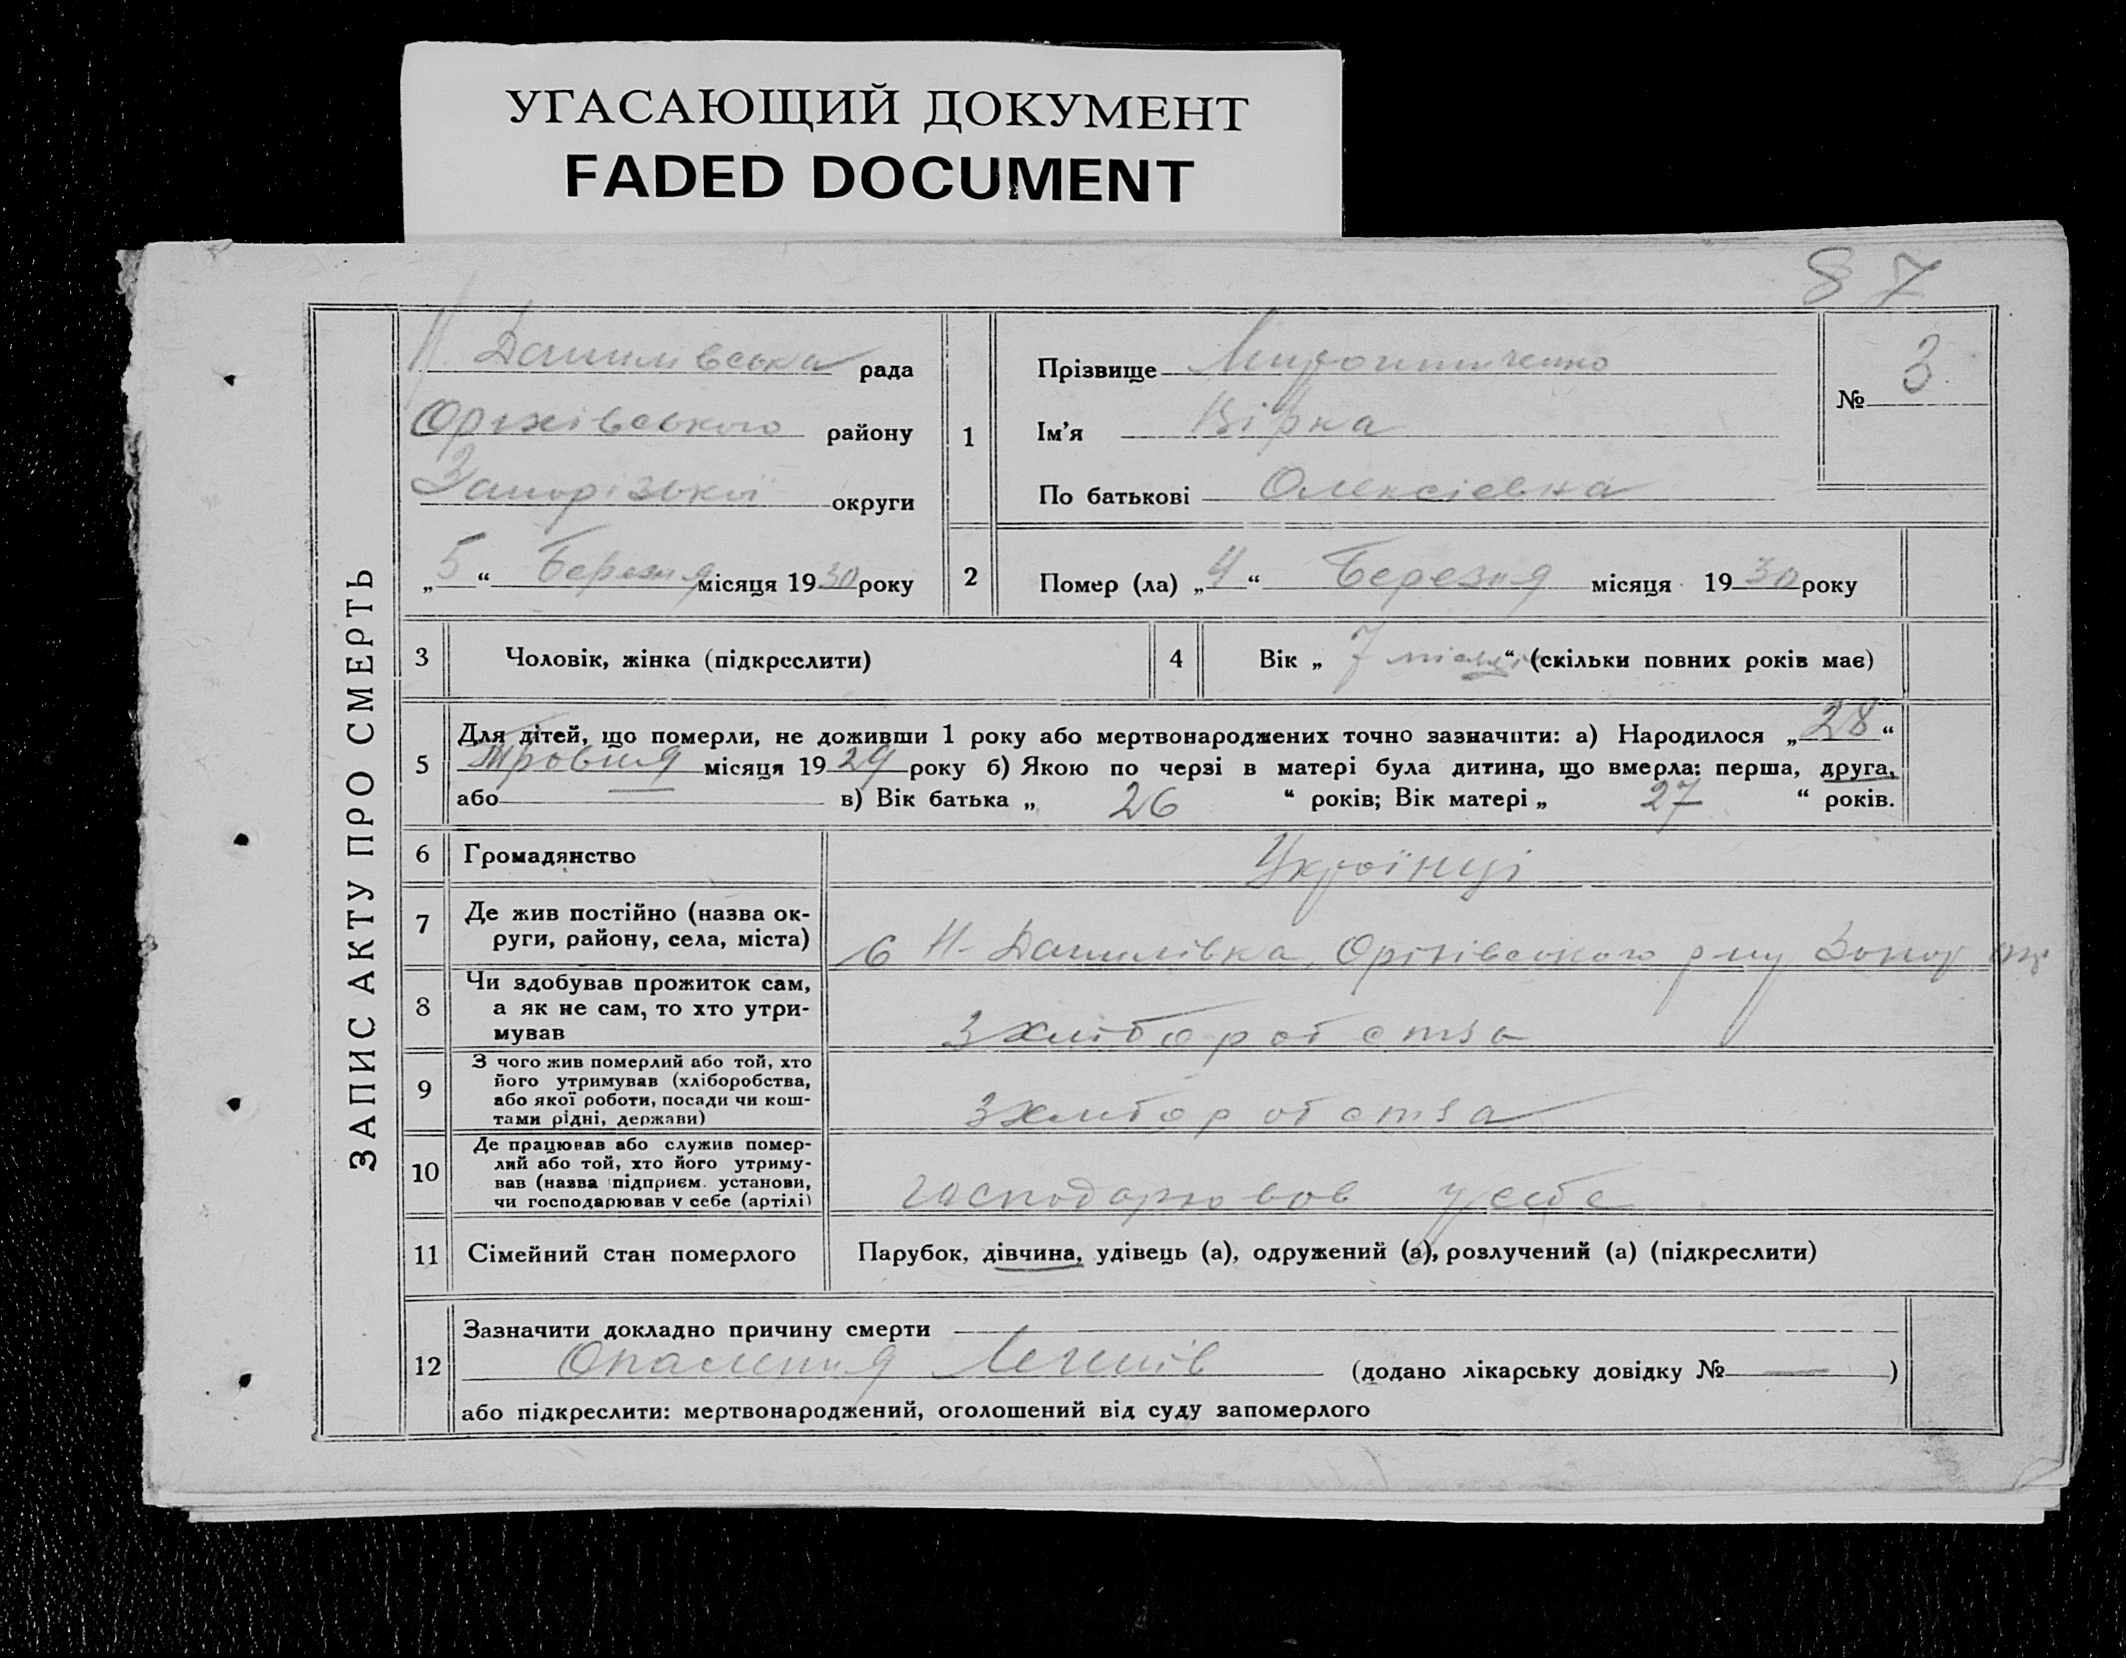 УГАСАЮЩИЙ ДОКУМЕНТ
FADED DOCUMENT
87
ЗАПИС АКТУ ПРО СМЕРТЬ
Н. Данилівська рада
Оріхівського району
Запорізької округи
„5“ Березня місяця 1930 року
1
Прізвище Мирошниченко
Ім'я Вірка
По батькові Олексіевна
№ 3
2
Помер (ла) „4“ Березня місяця 1930 року
3
Чоловік, жінка (підкреслити)
4
Вік „ 7 місяців “ (скільки повних років має)
5
Для дітей, що померли, не доживши 1 року або мертвонароджених точно зазначити: а) Народилося „28“
Травня місяця 1929 року б) Якою по черзі в матері була дитина, що вмерла: перша, друга,
або в) Вік батька „ 26 “ років; Вік матері „ 27 “ років.
6
Громадянство
Українці
7
Де жив постійно (назва ок-
руги, району, села, міста)
с Н-Данилівка, Оріхівського р-ну Запор окр
8
Чи здобував прожиток сам,
а як не сам, то хто утри-
мував
З хліборобства
9
З чого жив померлий або той, хто
його утримував (хліборобства,
або якої роботи, посади чи кош-
тами рідні, держави)
З хліборобства
10
Де працював або служив помер-
лий або той, хто його утриму-
вав (назва підприєм. установи,
чи господарював у себе (артілі)
господарював у себе
11
Сімейний стан померлого
Парубок, дівчина, удівець (а), одружений (а), розлучений (а) (підкреслити)
12
Зазначити докладно причину смерти
Опалення Легенів (додано лікарську довідку № — )
або підкреслити: мертвонароджений, оголошений від суду запомерлого